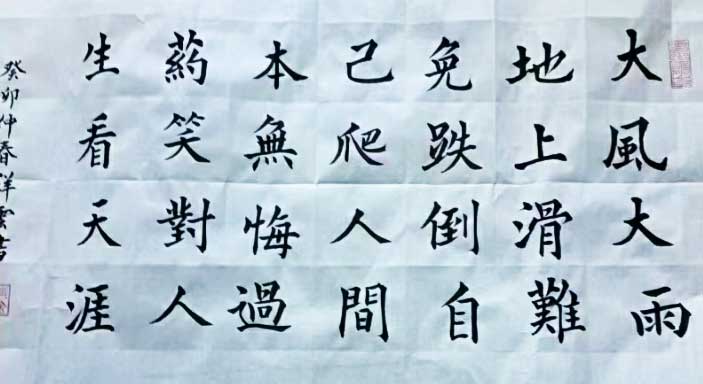 大風大雨
地上滑難
免跌倒自
己爬人間
本無悔過
葯笑對人
生看天涯
癸卯仲春祥雲書